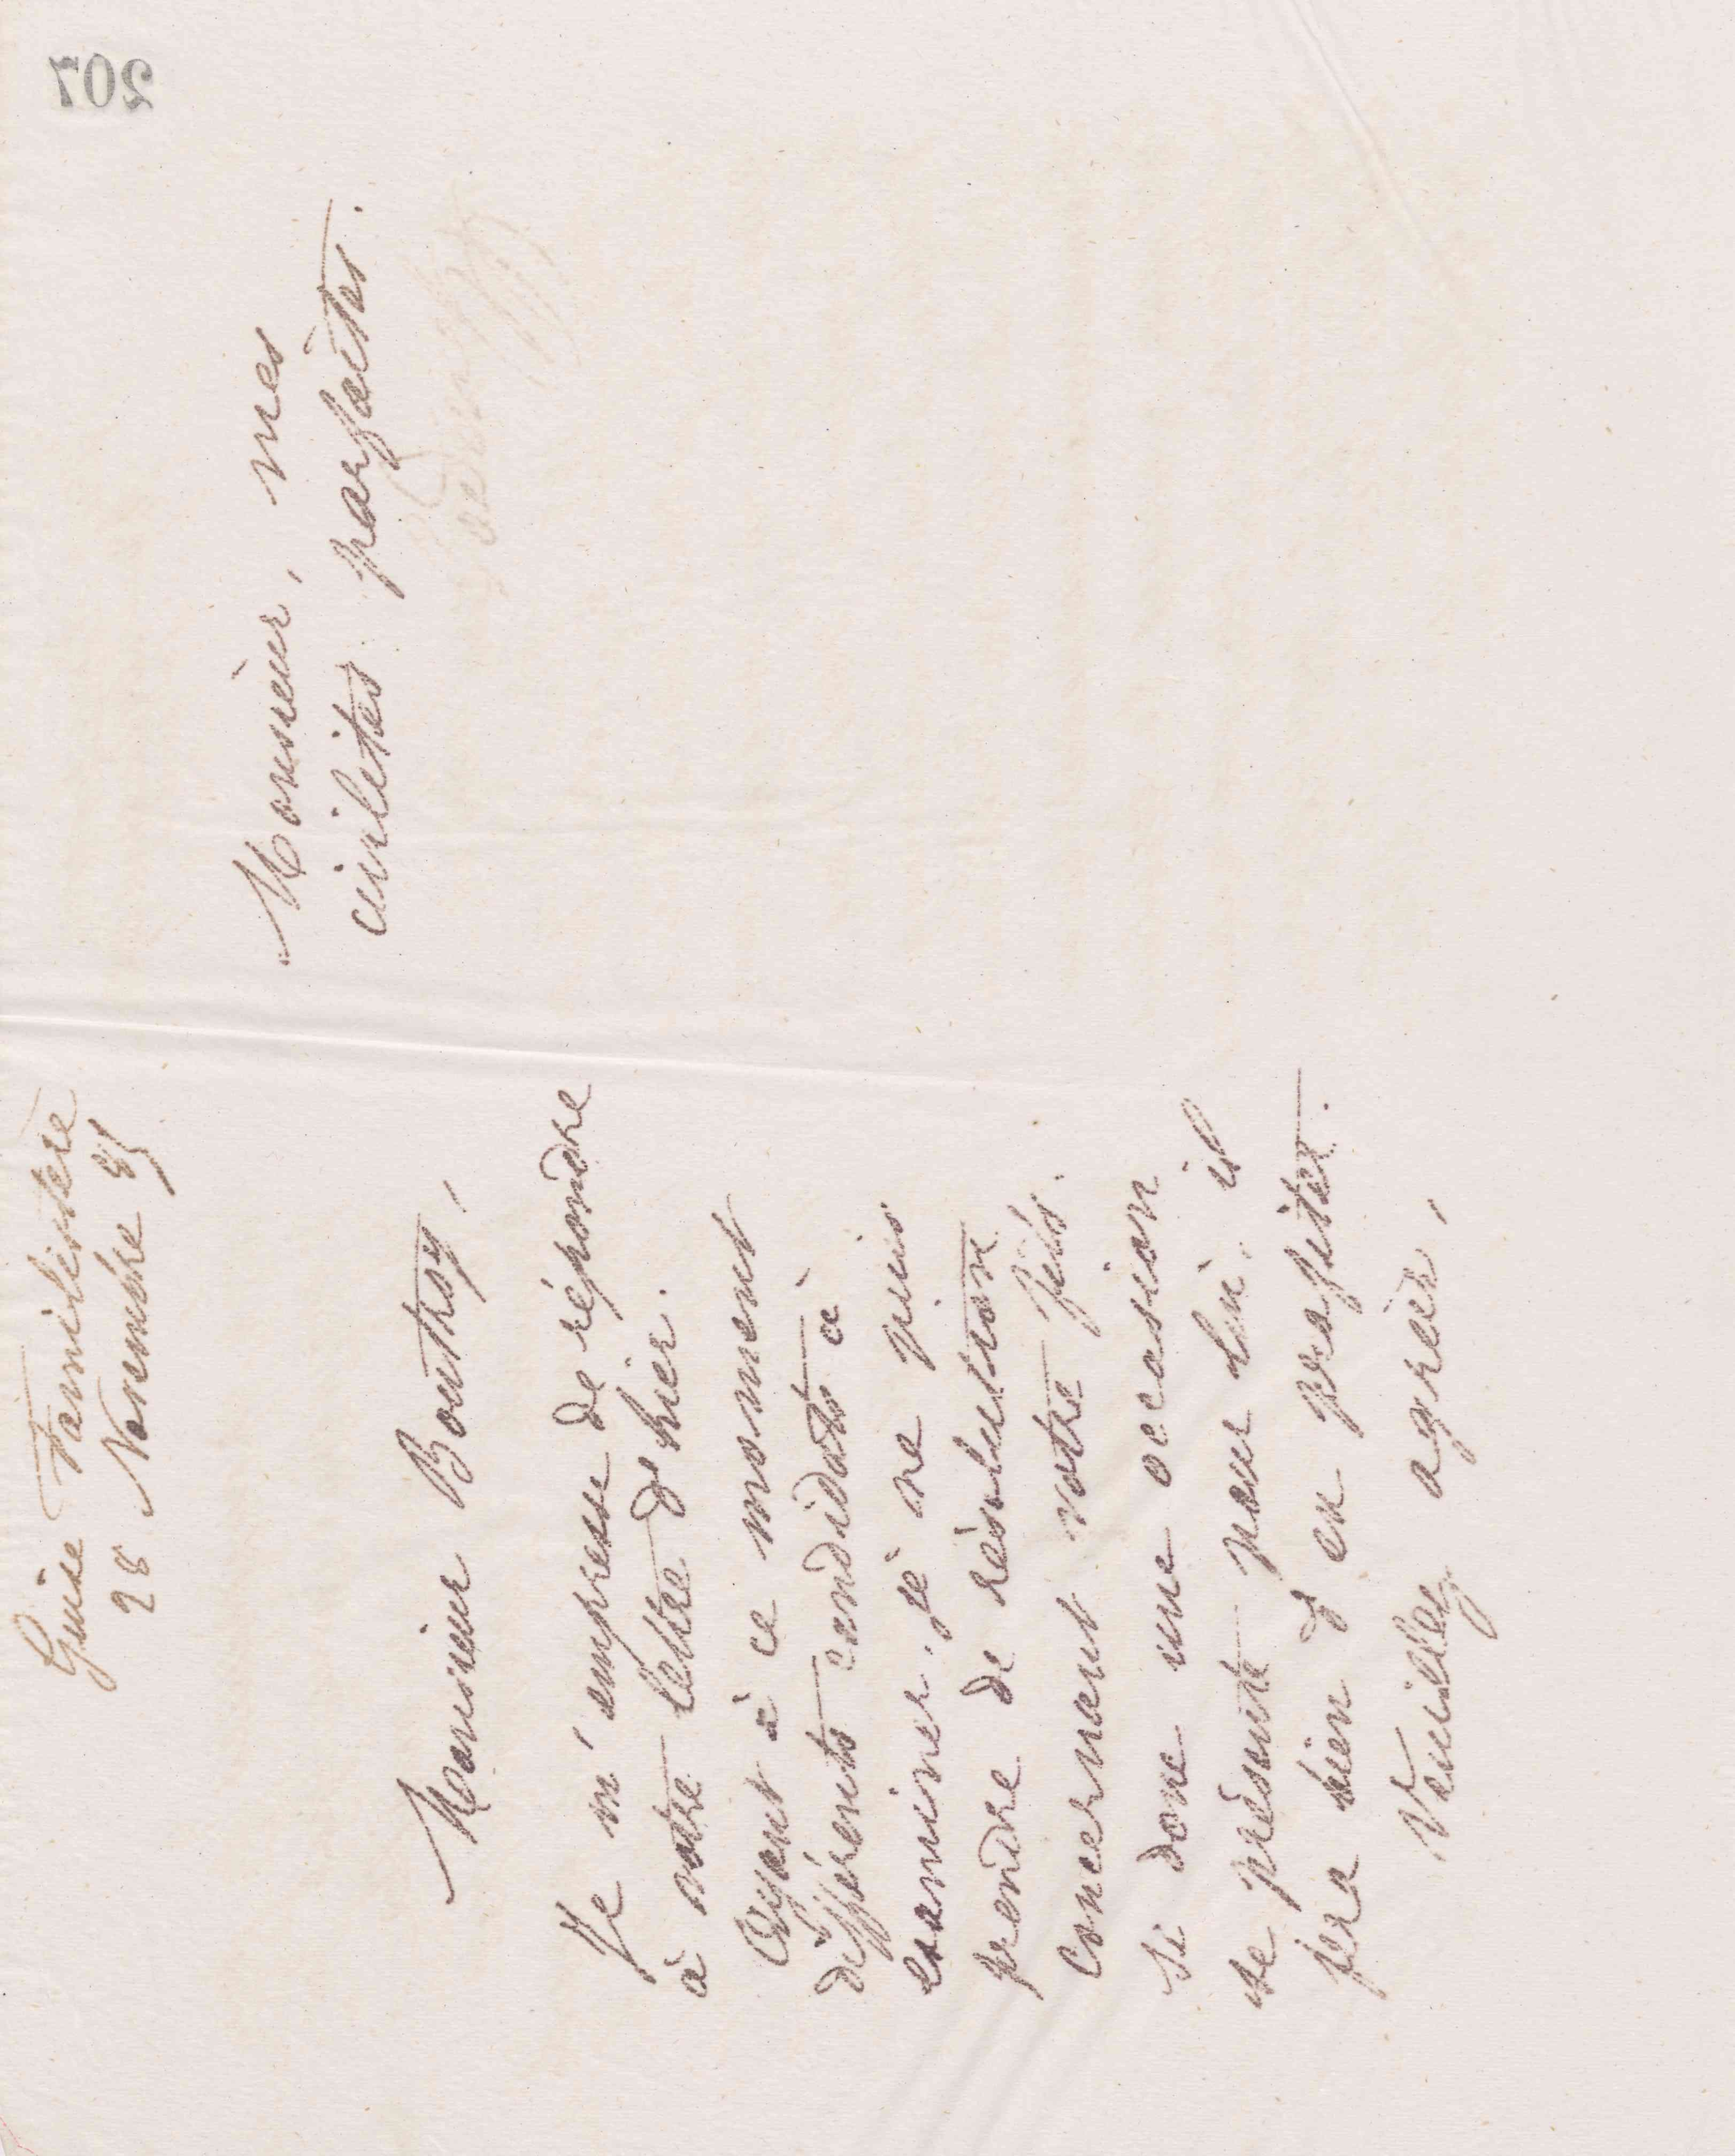 Guise Familistère
28 Novembre 85
Monsieur Boutroy,
Je m'empresse de répondre
à votre lettre d'hier.
Ayant à ce moment
différents candidats à
examiner, je ne puis
prendre de résolution
concernant votre fils.
Si donc une occasion
se présente pour lui, il
fera bien d'en profiter.
Veuillez agréer,
Monsieur, mes
civilités parfaites.
207